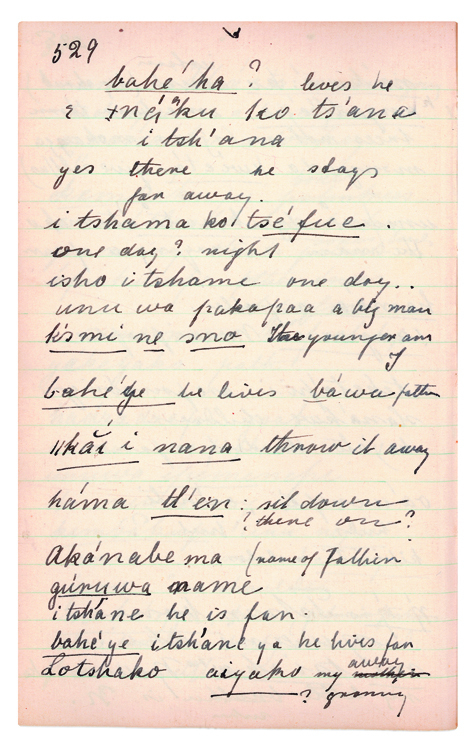 529
bahé'ha ? lives he
ɛ ǂnéi̯ku ko ts'ana
i tsh'ana
yes there he stays
far away.
i tshama ko tsé fue.
one day? night
isho i tshame one day..
unu wa pakapaa a big man
k'smi ne sno The younger am
I
bahé'ye he lives báwa father
ǁkăí i nana throw it away
háma tl'en: sit down
? there on?
Aká'nabe ma (name of Father
gúruwa name
i tshá'ne he is far.
bahé'ye itshá'ne ya he lives far
away
Lotshako aiyáko my mother
? granny